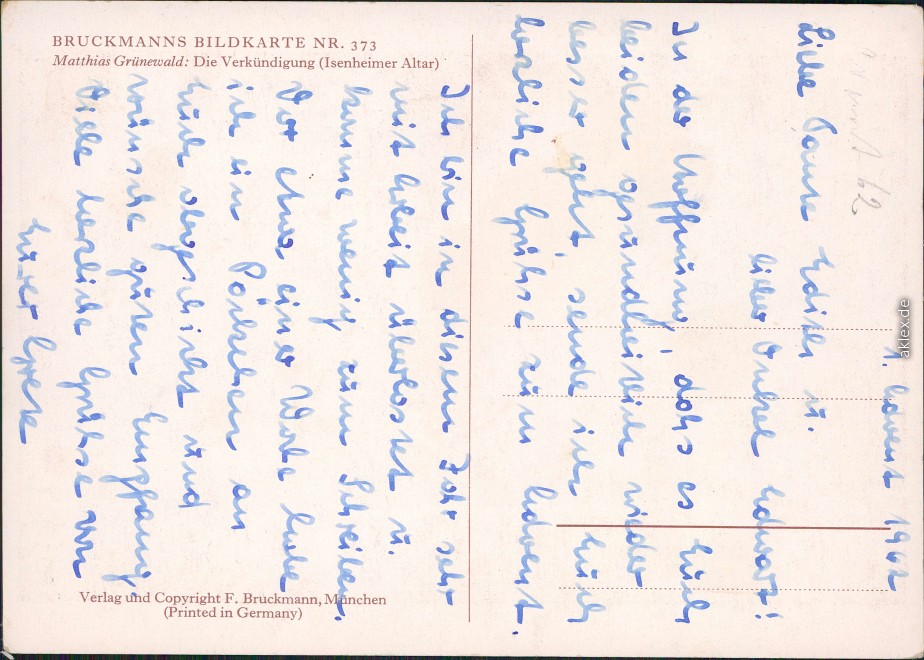 BRUCKMANNS BILDKARTE NR. 373
Matthias Grünewald: Die Verkündigung (Isenheimer Altar)
1. Advent 1962
Liebe Tante Edith u.
lieber Onkel Edward!
In der Hoffnung, dahs es Euch
beiden gesundheitlich wieder
besser geht, sende ich Euch
herzliche Grühse zum Advent.
Ich bin in diesem Jahr sehr
mit Arbeit überlastet u.
komme wenig zum Schreiben.
Vor etwa einer Woche habe
ich ein Päckchen an
Euch abgeschickt und
wünsche guten Empfang.
Viele herzliche Grühse von
Eurer Grete
Verlag und Copyright F. Bruckmann, München
(Printed in Germany)
aklex.de